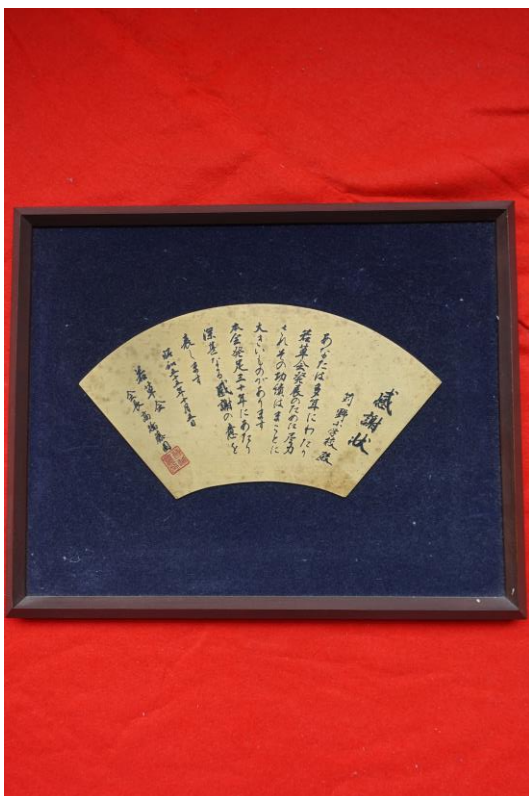 感謝状
苅野小学校殿
あなたは多年にわたり
若草会発展のために尽力
されその功績はまことに
大きいものがあります
本会発足三十年にあたり
深甚なる感謝の意を
表します
昭和五十五年十月吉日
若草会
会長